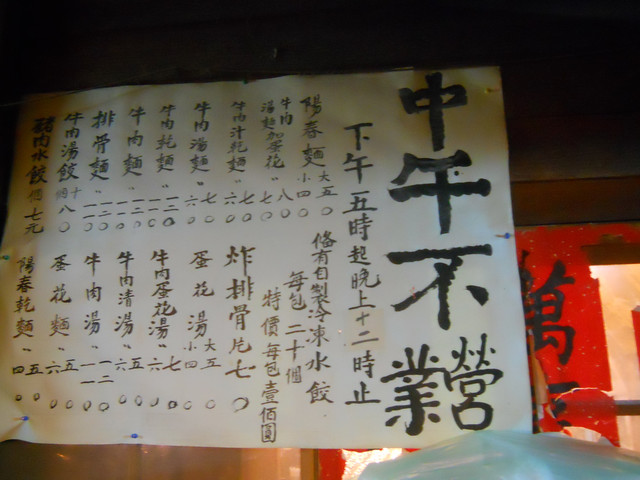 中午不營業
下午五時起晚上十二時止
陽春麵 大五〇 小四〇
牛肉湯麵加蛋花 八〇 七〇
牛肉汁乾麵〃 七〇 六〇
牛肉湯麵〃 七〇 六〇
牛肉乾麵〃 一二〇 一一〇
牛肉麵〃 一二〇 一一〇
排骨麵〃 一二〇 一一〇
牛肉湯餃 十個 八〇
豬肉水餃 個 七元
俻有自製冷凍水餃
每包二十個
特價每包壹佰圓
炸排骨片 七〇
蛋花湯 大五〇 小四〇
牛肉蛋花湯〃 七〇 六〇
牛肉清湯〃 五〇 六〇
牛肉湯〃 一二〇 一一〇
蛋花麵〃 五〇 六〇
陽春乾麵〃 五〇 四〇
萬